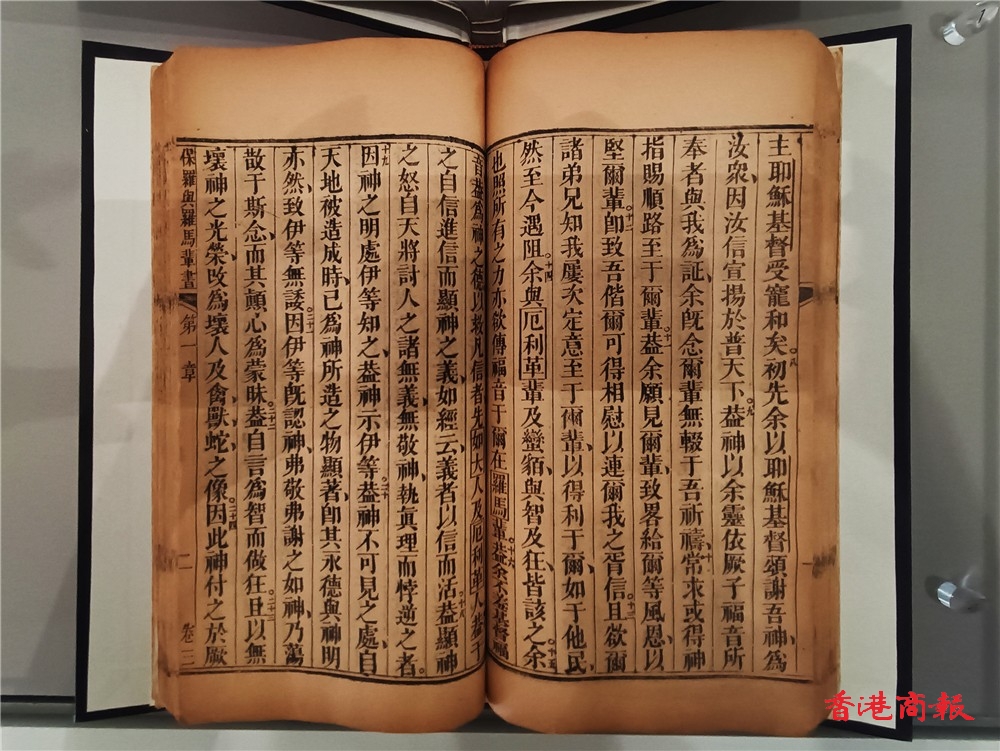 主耶穌基督受寵和矣八初先余以耶穌基督頌謝吾神為
汝眾因汝信宣揚於普天下九葢神以余靈依厥子福音所
奉者與我為証余旣念爾輩無輟于吾祈禱十常求或得神
指賜順路至于爾輩十一葢余願見爾輩致畧給爾等風恩以
堅爾輩十二卽致吾偕爾可得相慰以連爾我之胥信十三且欲爾
諸弟兄知我屢次定意至于爾輩以得利于爾如于他民
然至今遇阻十四余與厄利革輩及蠻貊與智及狂皆該之十五余
也照所有之力亦欲傳福音于爾在羅馬輩十六葢余不羞基督福
音葢為神之德以救凡信者先如大人及厄利革人葢于
之自信進信而顯神之義如經云義者以信而活十八葢顯神
之怒自天將討人之諸無義無敬神執眞理而悖逆之者
十九因神之明處伊等知之葢神示伊等二十葢神不可見之處自
天地被造成時已為神所造之物顯著卽其永德與神明
亦然致伊等無諉二一因伊等旣認神弗敬弗謝之如神乃蕩
散于斯念而其顛心為蒙昧二二葢自言為智而做狂二三且以無
壞神之光榮改為壞人及禽獸蛇之像二四因此神付之於厥
保羅與羅馬輩書 第一章 二 卷三
香港商報